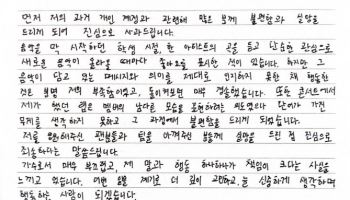 먼저 저의 과거 개인 계정과 관련해 많은 분께 불편함과 실망을
드리게 되어 진심으로 사과드립니다.
음악을 막 시작하던 학생 시절, 한 아티스트의 곡을 듣고 단순한 관심으로
새로운 음악이 올라올 때마다 좋아요를 표시한 것이 있습니다. 하지만 그
음악이 담고 있는 메시지와 의미를 제대로 인지하지 못한 채 행동한
것은 분명 저의 부족함이었고, 돌이켜보며 매우 경솔했습니다. 또한 콘서트에서
제가 했던 랩은 멤버의 남다른 모습을 표현하려는 의도였으나 단어가 가진
무게를 생각하지 못하고 그 과정에서 불편함을 드리게 되었습니다.
저를 응원해주신 팬분들과 팀을 아껴주신 분들께 실망을 드린 점 진심으로
죄송하다는 말씀드립니다.
가수로서 매우 부끄럽고, 제 말과 행동 하나하나가 책임이 크다는 사실을
느끼고 있습니다. 이번 일을 계기로 더 깊이 고민하고, 늘 신중하게 생각하며
행동하는 사람이 되겠습니다.